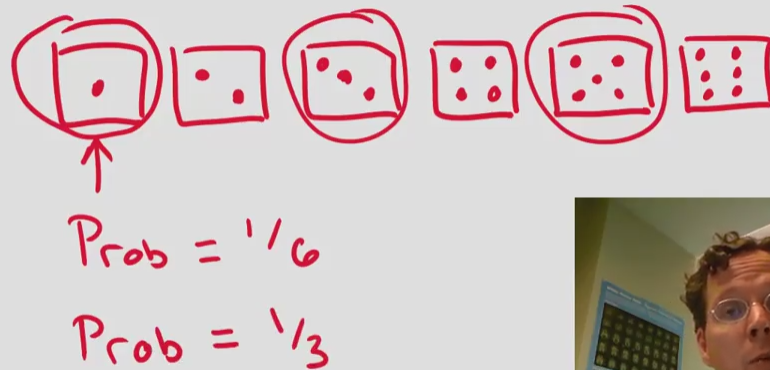 Prob = 1/6
Prob = 1/3